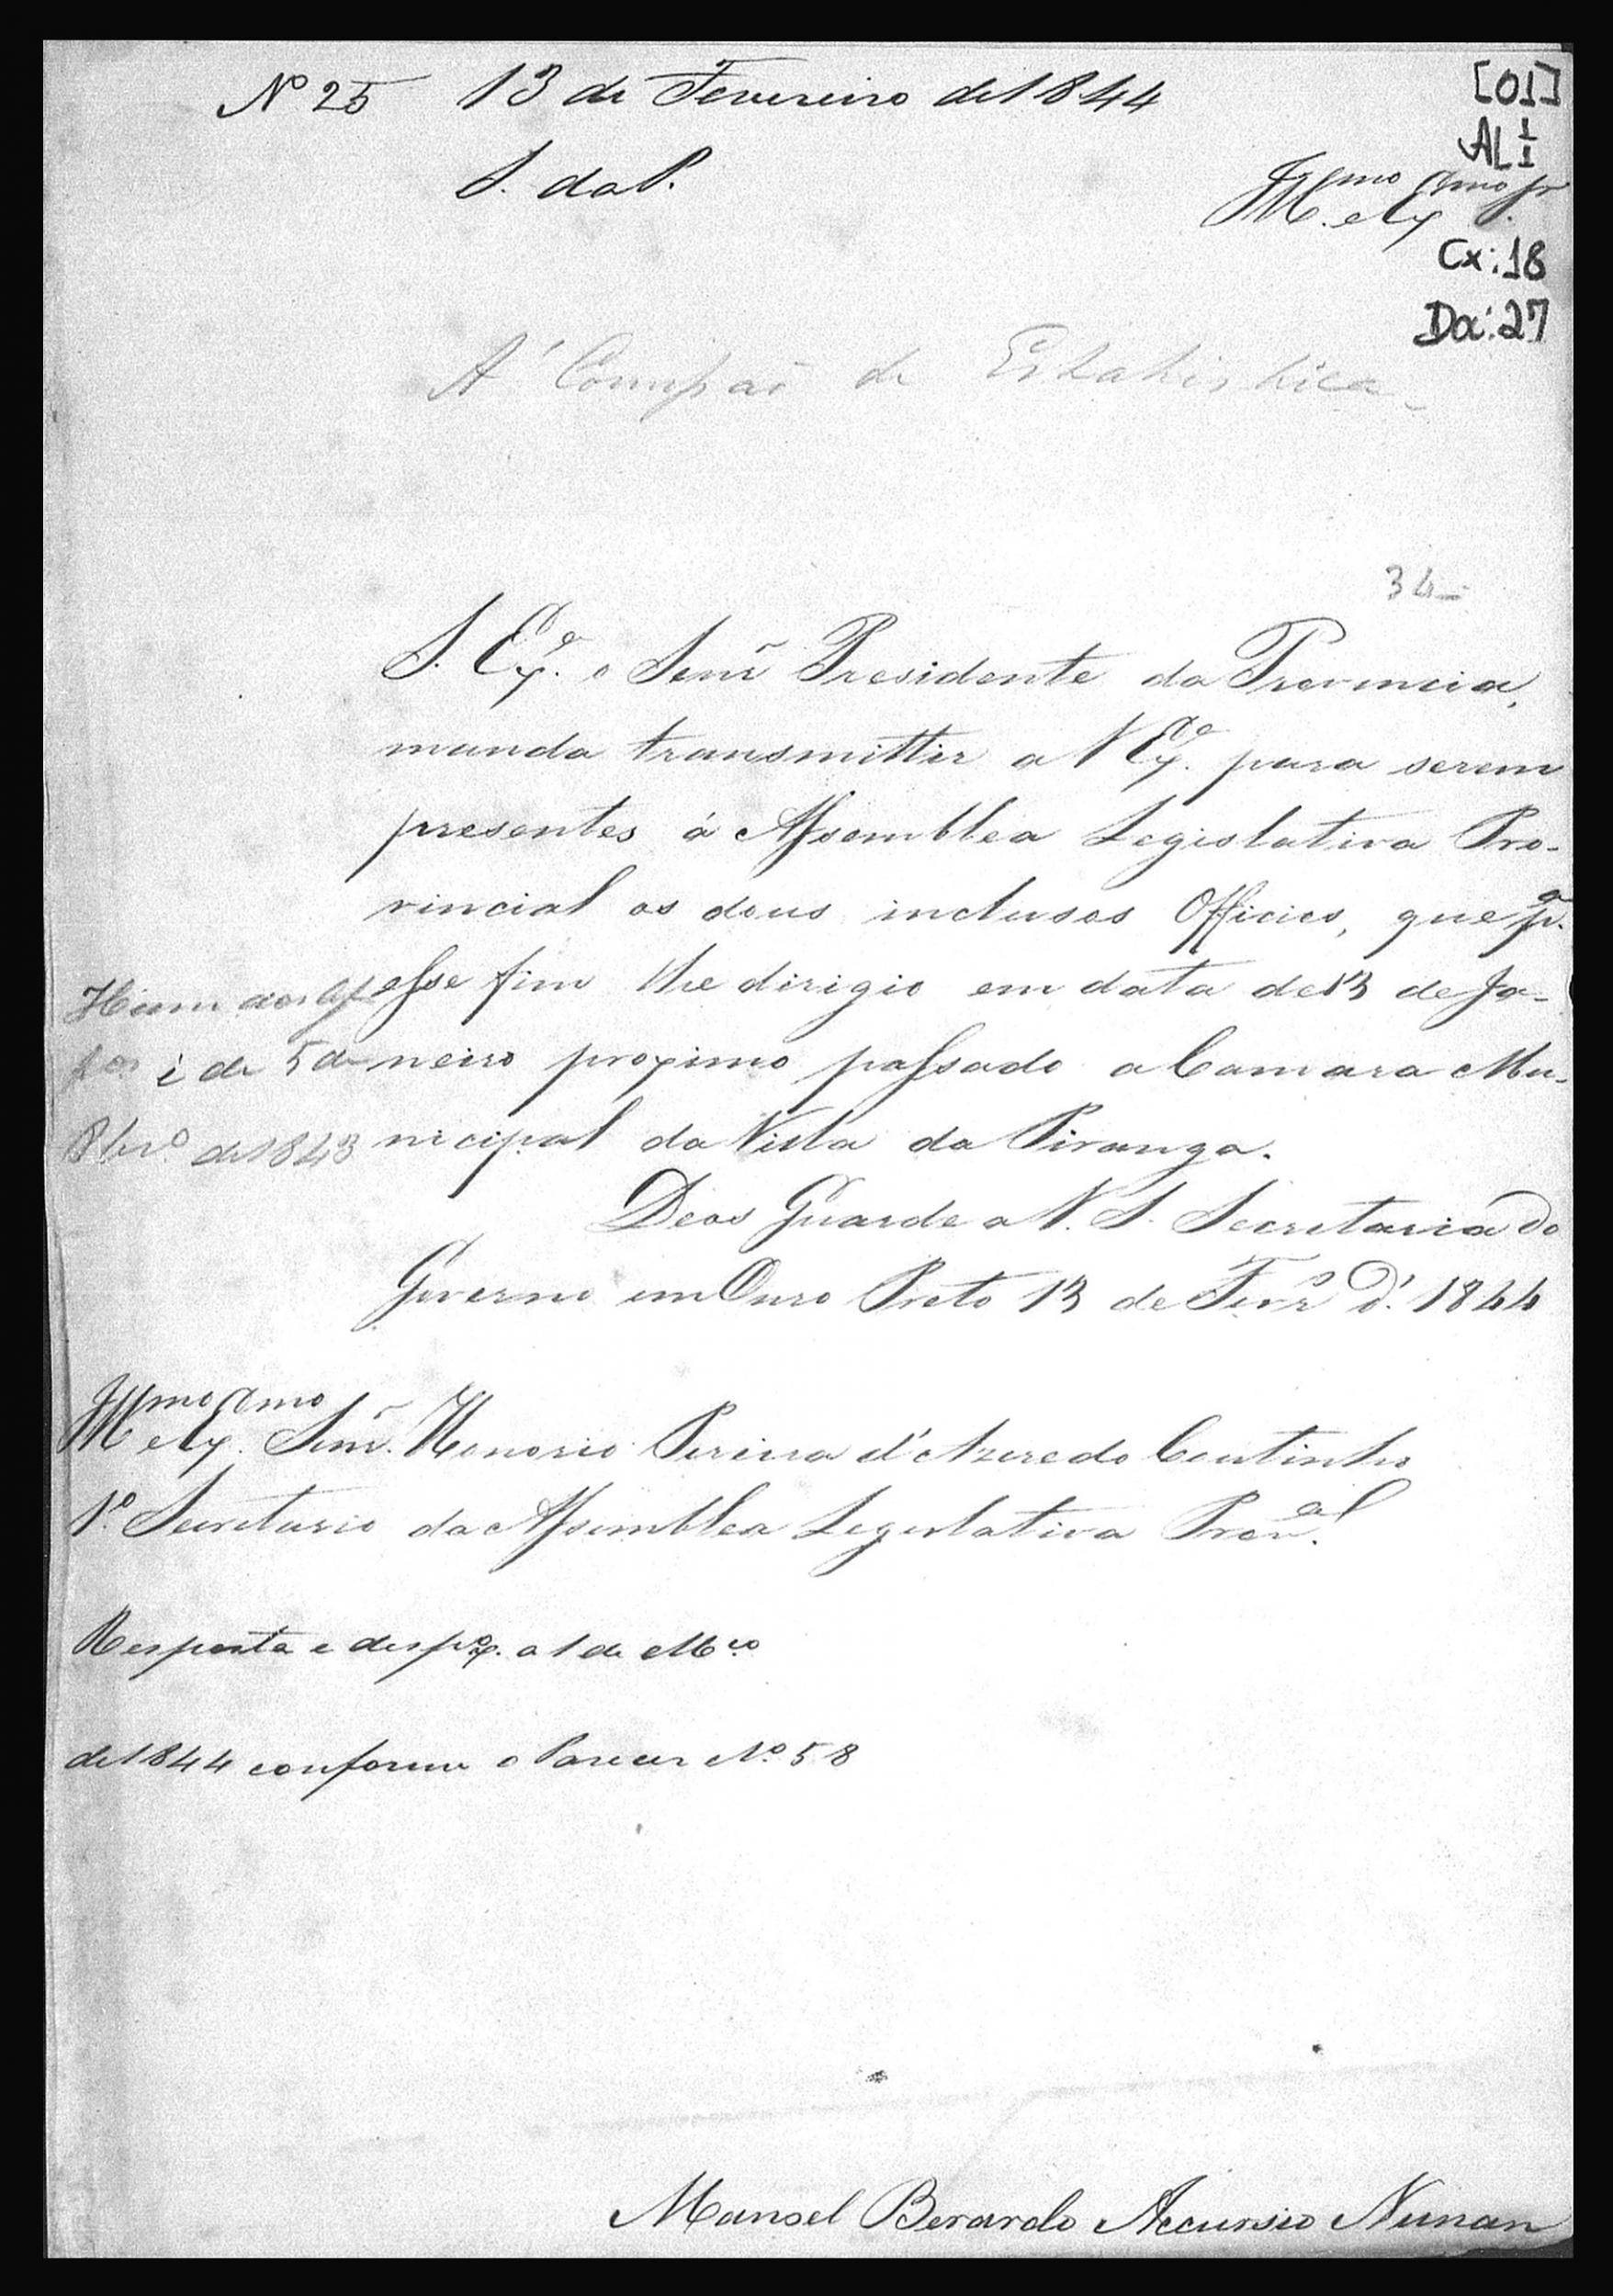 Nº 25 13 de Fevereiro de 1844
[01]
AL 1/1
S. da P.
Illmo e Exmo Sr.
Cx: 18
Dx: 27
A' Comissão de Estatistica
34
S. Exª o Senr Presidente da Provincia,
manda transmittir a V Exª para serem
presentes á Assemblea Legislativa Pro-
vincial os dous inclusos Officios, que pª
esse fim lhe dirigio em data de 13 de Ja-
neiro proximo passado a Camara Mu-
nicipal da Villa da Piranga.
Hum dos
é de 5 de
de 1843
Deos Guarde a V. S. Secretaria do
Governo em Ouro Preto 13 de Fevrº d' 1844
Illmo e Exmo Senr. Honorio Pereira d'Azeredo Coutinho
1º Secretario da Assemblea Legislativa Proval.
Resposta e a 1 de Mço
de 1844 conforme o Parecer Nº 58
Manoel Berardo Accursio Nunan